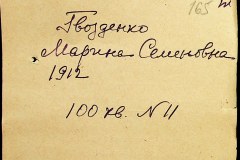 165
Гвозденко
Марина Семеновна
1912
100 кв. N 11